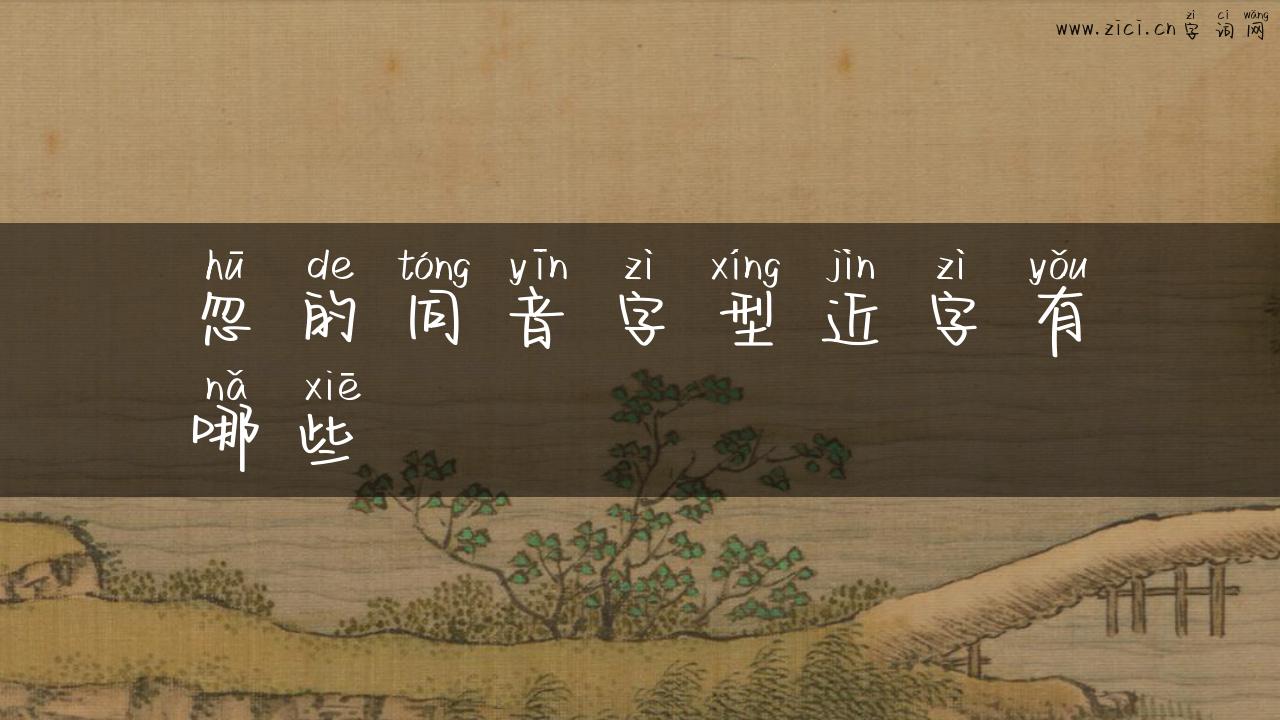 zì cí wǎng
www.zici.cn 字 词 网
hū de tóng yīn zì xíng jìn zì yǒu
忽 的 同 音 字 型 近 字 有
nǎ xiē
哪 些